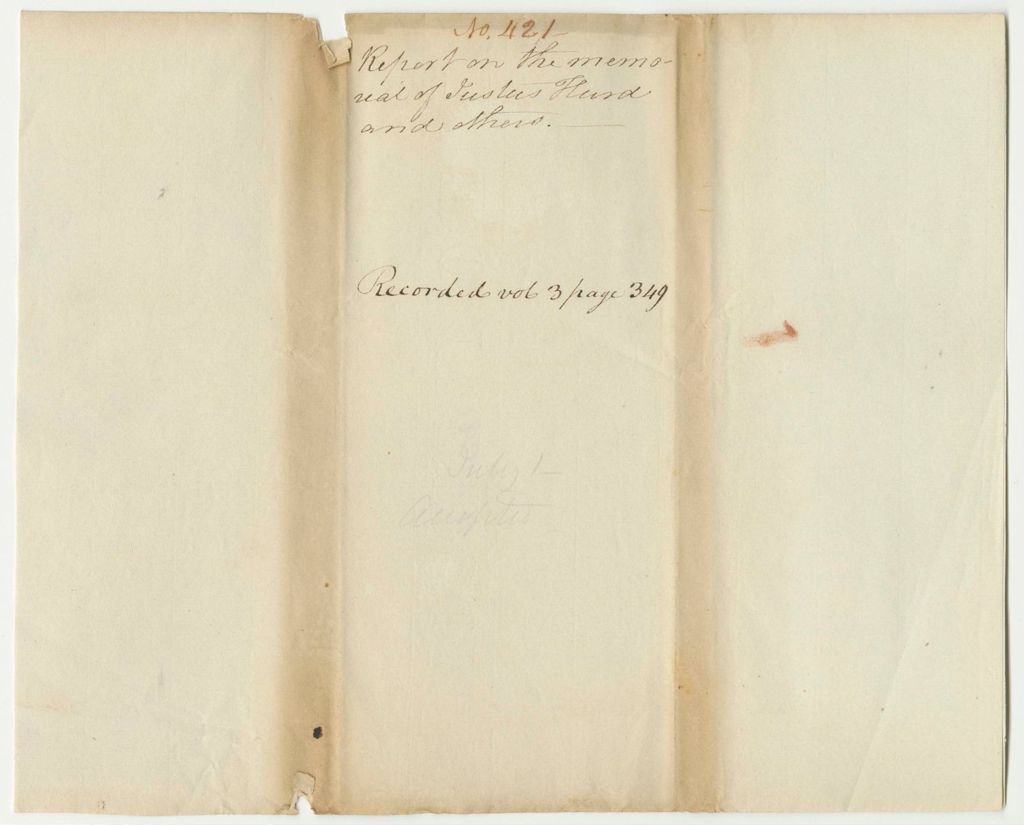 No. 421
Report on the memo-
rial of Justus Hurd
and others.
Recorded vol 3 page 349
July 1
Accepted